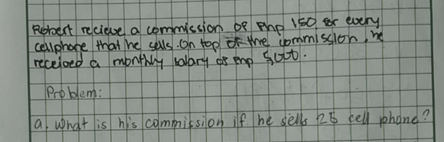 Robert recieve a commission of Php 150 for every
cellphone that he sells. On top of the commission, he
received a monthly salary of Php 5,000.
Problem:
a. What is his commission if he sells 25 cell phone?